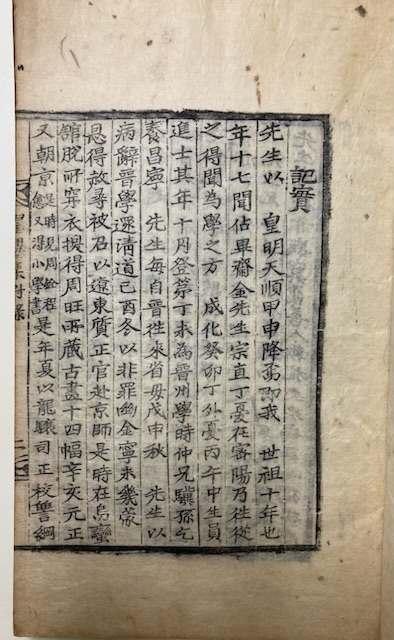 記實
先生以 皇明天順甲申降 即我 世祖十年也
年十七聞佔畢齋金先生宗直丁憂在密陽乃往從
之得聞為學之方 成化癸卯丁外憂丙午中生員
進士其年十月登第丁未為晉州學時仲兄驥孫乞
養昌寧 先生每自晉往來省母戊申秋 先生以
病辭晉學還淸道己酉冬以非罪幽金寧未幾蒙
恩得放尋被召以遼東質正官赴京師是時在烏蠻
館脫所穿衣換得周旺所藏古畫十四幅辛亥元正
又朝京是時見周銓程愈又得小學書是年夏以龍驤司正校讐綱